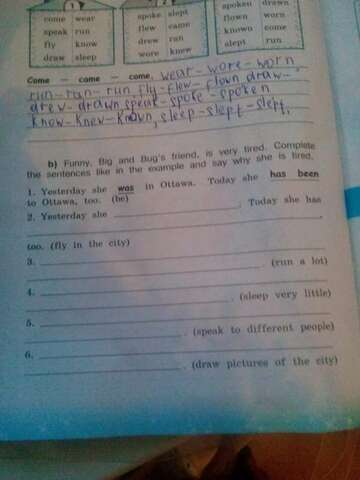 1
come wear
speak run
fly know
draw sleep
spoke slept
flew came
drew ran
wore knew
spoken drawn
flown worn
known come
slept run
Come – come – come, wear – wore – worn
run – run – run, fly – flew – flown, draw –
drew – drawn, speak – spoke – spoken
know – knew – known, sleep – slept – slept.
b) Funny, Big and Bug's friend, is very tired. Complete
the sentences like in the example and say why she is tired.
1. Yesterday she was in Ottawa. Today she has been
to Ottawa, too. (be)
2. Yesterday she ____. Today she has
too. (fly in the city)
3. ____. (run a lot)
4. ____. (sleep very little)
5. ____. (speak to different people)
6. ____. (draw pictures of the city)